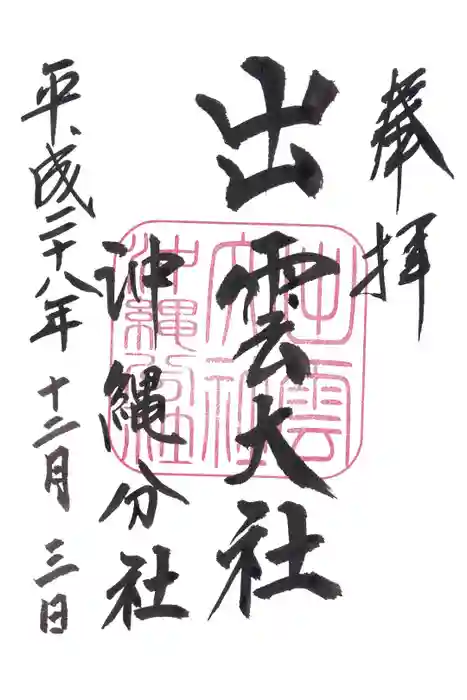 奉拝
出雲大社
沖縄分社
平成二十八年十二月三日
出雲
大社
沖縄分社